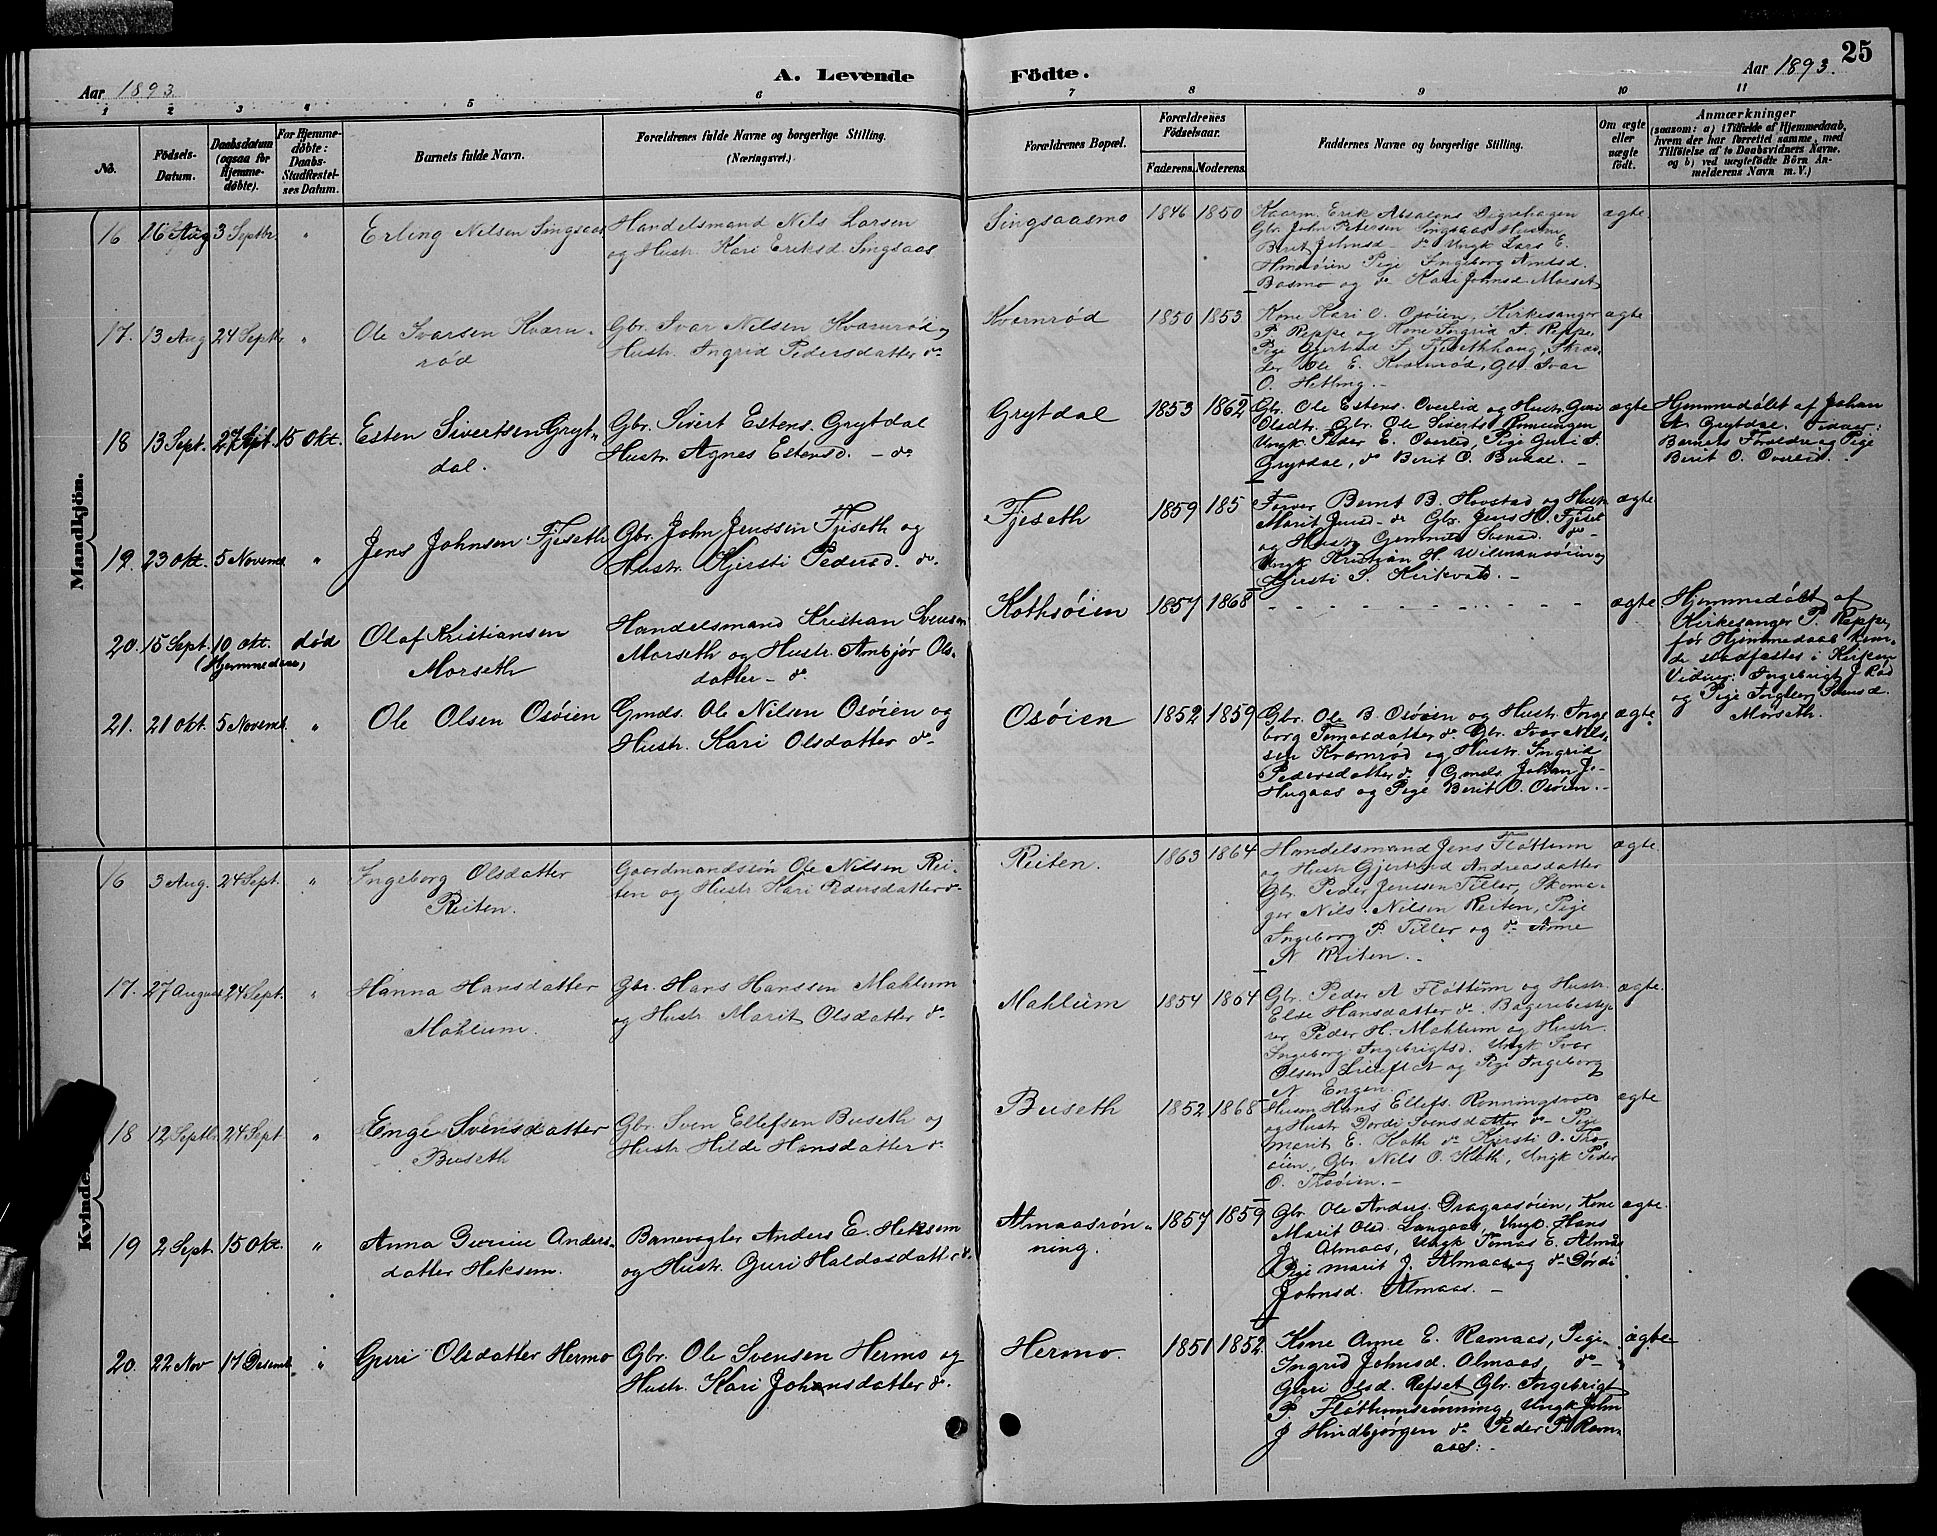 25
A. Levende Födte.
Aar 1893.
Aar 1893.
1 2 3 4 5 6 7 8 9 10 11
No.
Födsels-
Datum.
Daabsdatum
(ogsaa for
Hjemme-
döbte).
For Hjemme-
döbte:
Daabs-
Stadfæstel-
ses Datum.
Barnets fulde Navn.
Forældrenes fulde Navne og borgerlige Stilling.
(Næringsvei.)
Forældrenes Bopæl.
Forældrenes
Födselsaar.
Faderens. Moderens.
Faddernes Navne og borgerlige Stilling.
Om ægte
eller
uægte
födt.
Anmærkninger
(saasom: a) i Tilfælde af Hjemmedaab,
hvem der har forrettet samme, med
Tilföielse af to Daabsvidners Navne,
og b) ved uægtefödte Börn An-
melderens Navn m. V.)
Mandkjön.
16 16 Aug 3 Septbr. " Erling Nilsen Singsaas
Handelsmand Nils Larsen
og Hustr. Kari Eriksd. Singsaas
Singsaasmo 1846 1850
Kaarm. Erik Absalons Digrehagen
Gbr. John Petersen Singsaas Hustru
Berit Johnsd. do Ungk Lars E.
Hindsöien Pige Ingeborg Arntsd.
Bosmo og do Kari Johnsd. Morset
ægte
17. 13 Aug 24 Septbr " Ole Ivarsen Kværn-
röd
Gbr. Ivar Nilsen Kværnröd og
Hustr. Ingrid Pedersdatter do
Kværnröd 1850 1853
Kone Kari O. Osöien, Kirkesanger
P. Reppe og Kone Ingrid T. Reppe,
Pige Gjertrud S. Fjesethhaug, Skræd-
der Ole E. Kværnröd, Gbr. Ivar
O. Hetling.
ægte
18 13 Sept. 27 Sept. 15 Okt. Esten Sivertsen Gryt-
dal.
Gbr. Sivert Estens. Grytdal
Hustr. Agnes Estensd. - do
Grytdal 1853 1862
Gbr. Ole Estens. Overlid og Hustr. Guri
Olsdtr. Gbr. Ole Siverts Romungen
Ungk. Peder E. Overlid, Pige Guri S.
Grytdal, do Berit O. Budal. -
ægte
Hjemmedöbt af Johan
St. Grytdal. Vidner:
Barnets Foreldre og Pige
Berit O. Overlid.
19. 23 Okt. 5 Novemb. " Jens Johnsen Fjeseth
Gbr. John Jenssen Fjeseth og
Hustr. Kjersti Pedersd. do.
Fjeseth 1859 185
Farver Bernt B. Hovstad og Hustr
Marit Jensd. do Gbr. Jens H. Fjeset
og Hustr. Svensd. do
Ungk Kristian H. Wilmansöien og
Kjersti S. Kirkvold. -
ægte
20. 15 Sept. 10 Okt. död
(Hjemmedaab)
Olaf Kristiansen
Morseth
Handelsmand Kristian Svensen
Morseth og Hustr. Anbjör Ols-
datter - do
Kothsöien 1857 1868
- - - - - - - - - - -
ægte
Hjemmedöbt af
Kirkesanger P. Reppe,
för Hjemmedaab kun-
de stadfæstes i Kirken
Vidner: Ingebrigt J. Röd
og Pige Ingeborg Svensd.
Morseth.
21. 21 Okt. 5 Novemb. " Ole Olsen Osöien
Gmds. Ole Nilsen Osöien og
Hustr. Kari Olsdatter do
Osöien 1852 1859
Gbr. Ole B. Osöien og Hustr. Inge-
borg Tomasdatter do. Gbr. Ivar Nils-
sen Kværnröd og Hustr. Ingrid
Pedersdatter do, Gmds. Johan J.
Hugaas og Pige Berit O. Osöien. -
ægte
Kvinde
16 3 Aug. 24 Sept. " Ingeborg Olsdatter
Reiten.
Gaardmandssön Ole Nilsen Rei-
ten og Hustr. Kari Pedersdatter do
Reiten. 1863 1864
Handelsmand Jens Flöttum
og Hustr Gjertrud Andreasdatter
Gbr. Peder Jenssen Tiller, Skoma-
ger Nils Nilsen Reiten, Pige
Ingeborg P. Tiller og do Anne
N Reiten. -
ægte
17. 27 August 24 Sept. " Hanna Hansdatter
Mahlum.
Gbr. Hans Hanssen Mahlum
og Hustr Marit Olsdatter do
Mahlum 1854 1864
Gbr. Peder A Flöttum og Hustr.
Else Hansdatter do Bagerebesty-
rer Peder H. Mahlum og Hustr.
Ingeborg Ingebrigtsd. Ungk Ivar
Olsen og Pige Ingeborg
N. Engen.
ægte
18 12 Septbr 24 Sept " Enge Svensdatter
Buseth
Gbr. Sven Ellefsen Buseth og
Hustr Hilde Hansdatter do
Buseth 1852 1868
Husm Hans Ellefs. Rönningsvold
og Hustr Dordi Svensdatter do Pige
Marit E. Koth do Kjersti O. Tro-
öien, Gbr. Nils O. Koth, Ungk Peder
O. Troöien. -
ægte
19 2 Sept. 15 Okt. " Anna Anders-
datter Heksem.
Banevogter Anders E. Heksem
og Hustr. Guri Haldosdatter do.
Almaasrön-
ning.
1857 1859
Gbr. Ole Anders. Dragaasöien, Kone
Marit Olsd. Langaas, Ungk. Hans
J. Almaas, Ungk Tomas E. Almås
Pige Marit J. Almaas og do Dordi
Johnsd. Almaas. -
ægte
20. 22 Nov 17 Desemb. " Guri Olsdatter Hermo
Gbr. Ole Svensen Hermo og
Hustr. Kari Johansdatter do.
Hermo. 1851 1852
Kone Anne E. Ramaas, Pige
Ingrid Johnsd. Almaas, do
Guri Olsd. Refset Gbr. Ingebrigt
P. Flöttumsrönning, Ungk John
J Hindbjörgen do Peder P. Ram-
aas: -
ægte